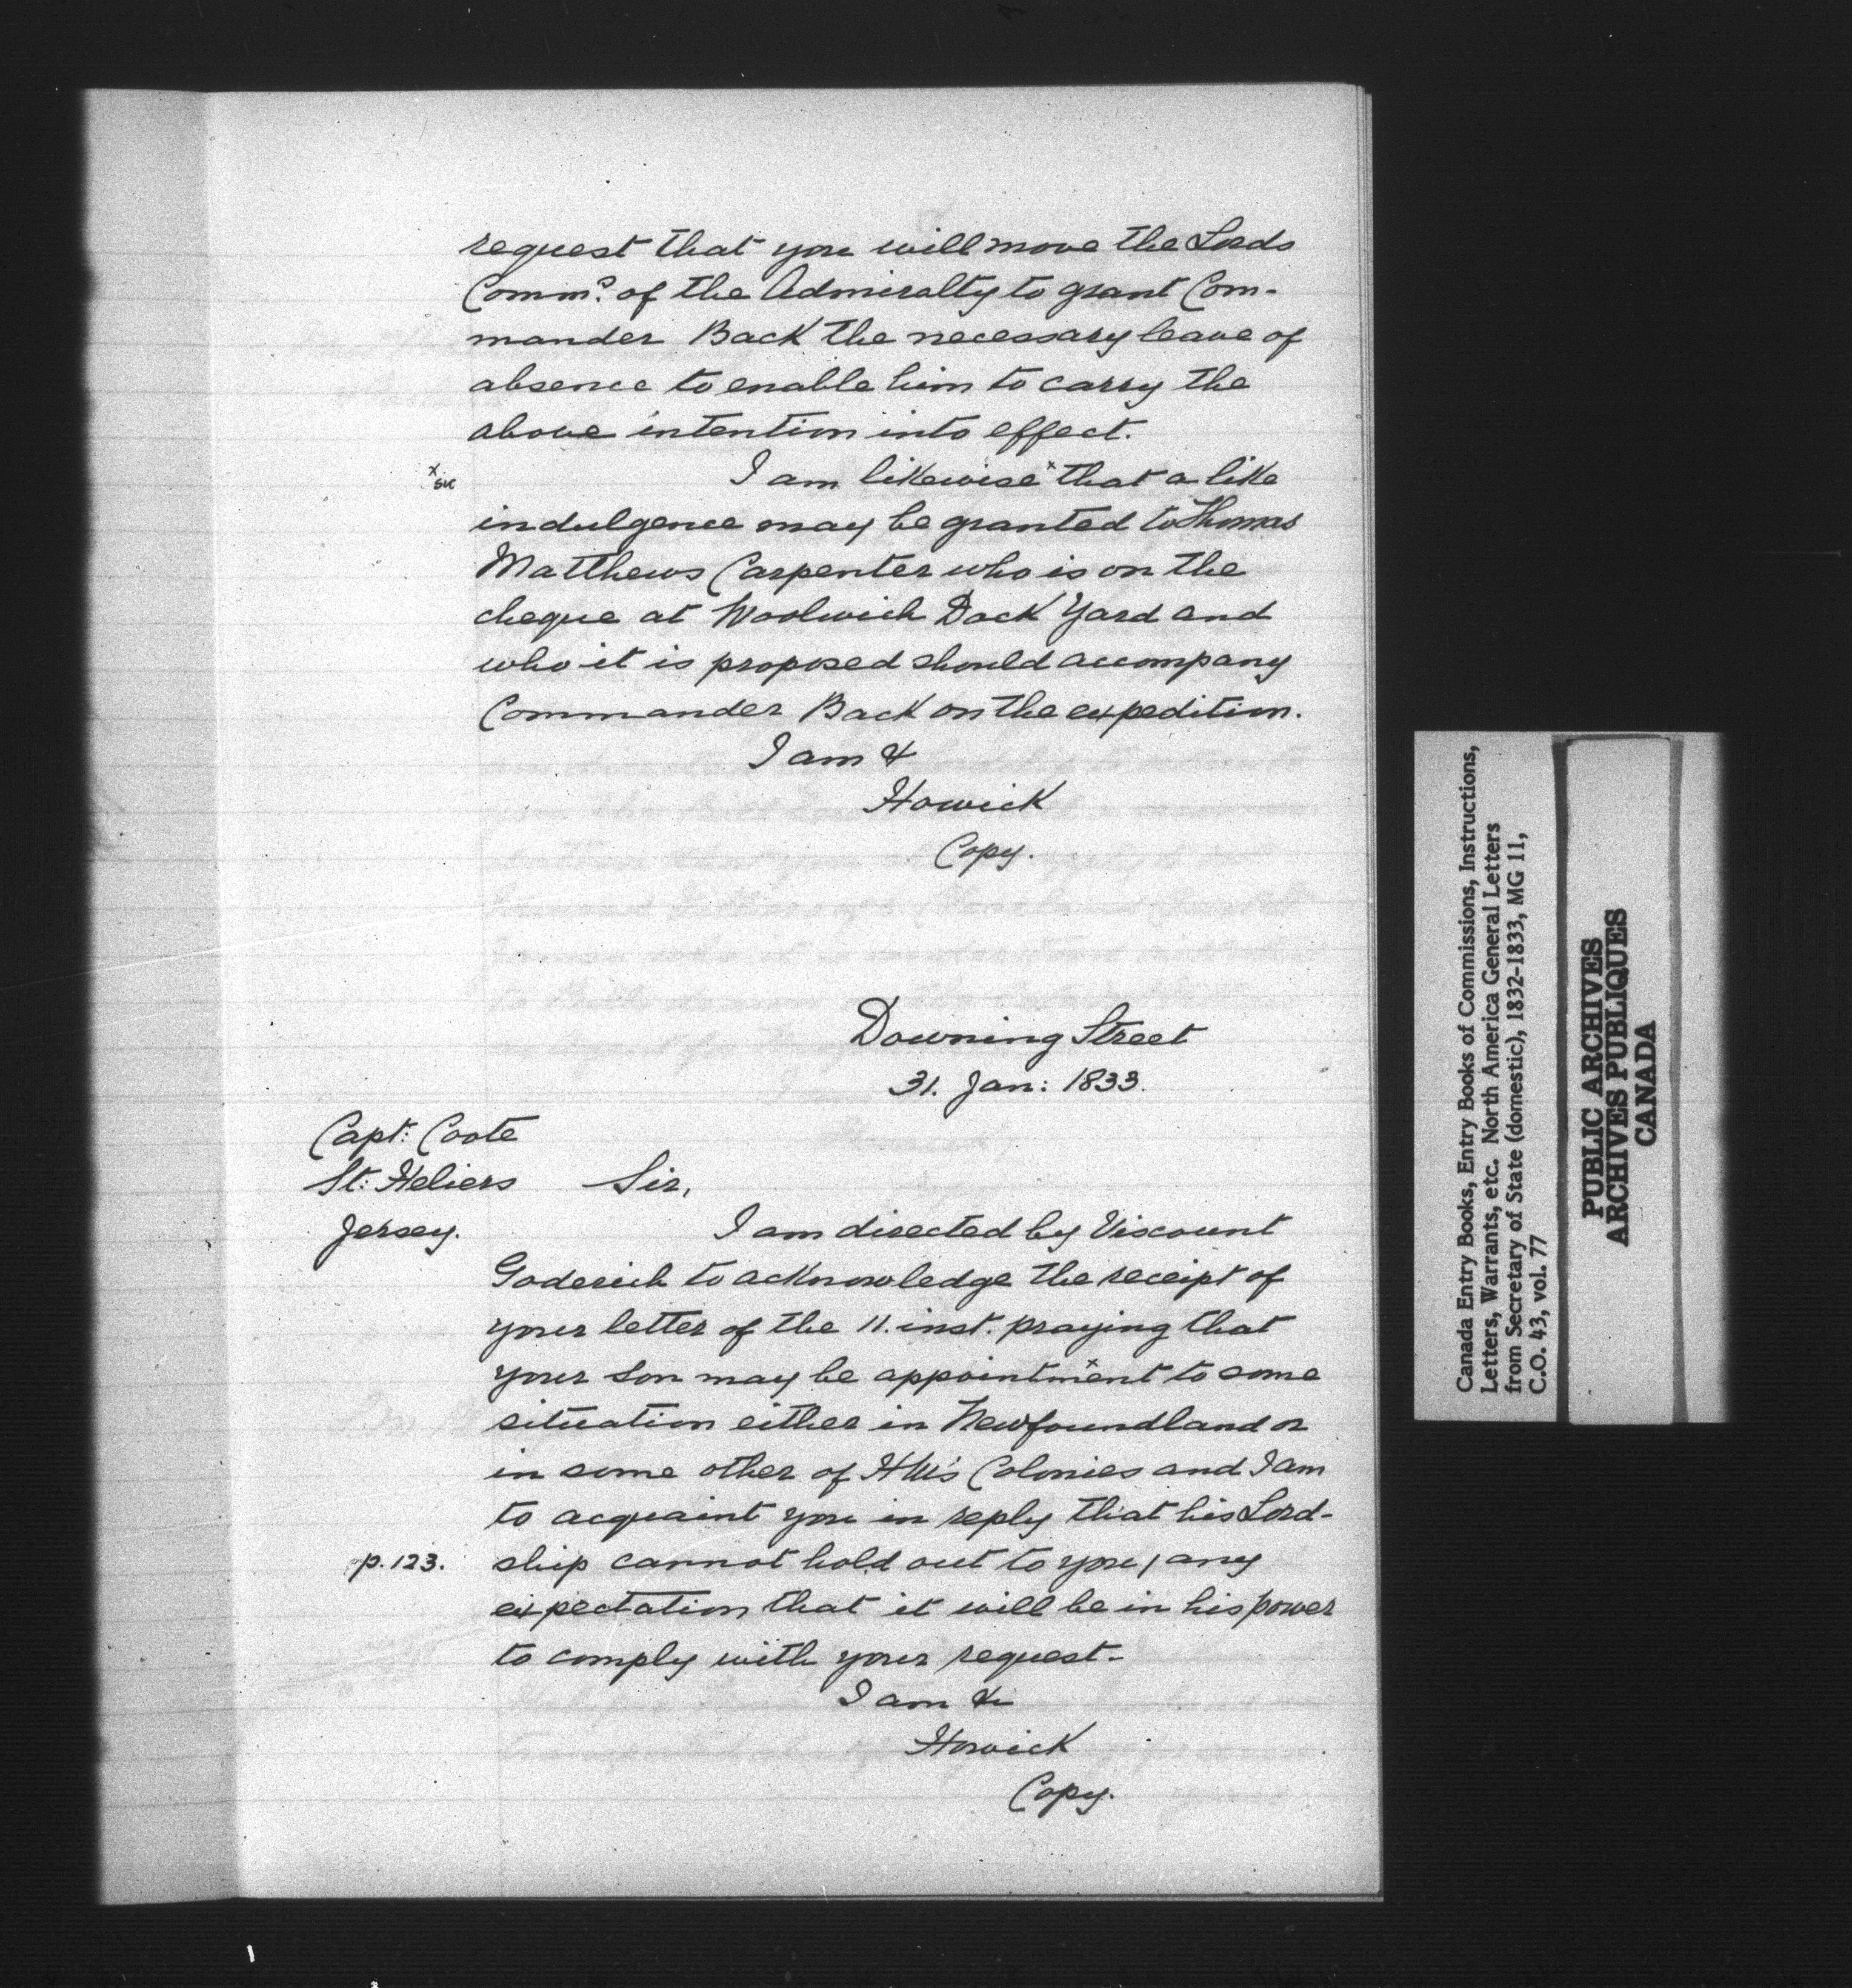 request that you will move the Lords
Comm.s of the Admiralty to grant Com-
mander Back the necessary leave of
absence to enable him to carry the
above intention into effect.
x
sic
I am likewise x that a like
indulgence may be granted to Thomas
Matthews Carpenter who is on the
cheque at Woolwich Dock Yard and
who it is proposed should accompany
Commander Back on the expedition.
I am &
Howick
Copy.
Downing Street
31. Jan: 1833.
Capt: Coote
St: Heliers
Jersey.
Sir,
I am directed by Viscount
Goderich to acknowledge the receipt of
your letter of the 11. inst. praying that
your son may be appointment x to some
situation either in Newfoundland or
in some other of HM's Colonies and I am
to acquaint you in reply that his Lord-
p. 123.
ship cannot hold out to you / any
expectation that it will be in his power
to comply with your request-
I am &c
Howick
Copy.
Canada Entry Books, Entry Books of Commissions, Instructions,
Letters, Warrants, etc. North America General Letters
from Secretary of State (domestic), 1832-1833, MG 11,
C.O. 43, vol. 77
PUBLIC ARCHIVES
ARCHIVES PUBLIQUES
CANADA